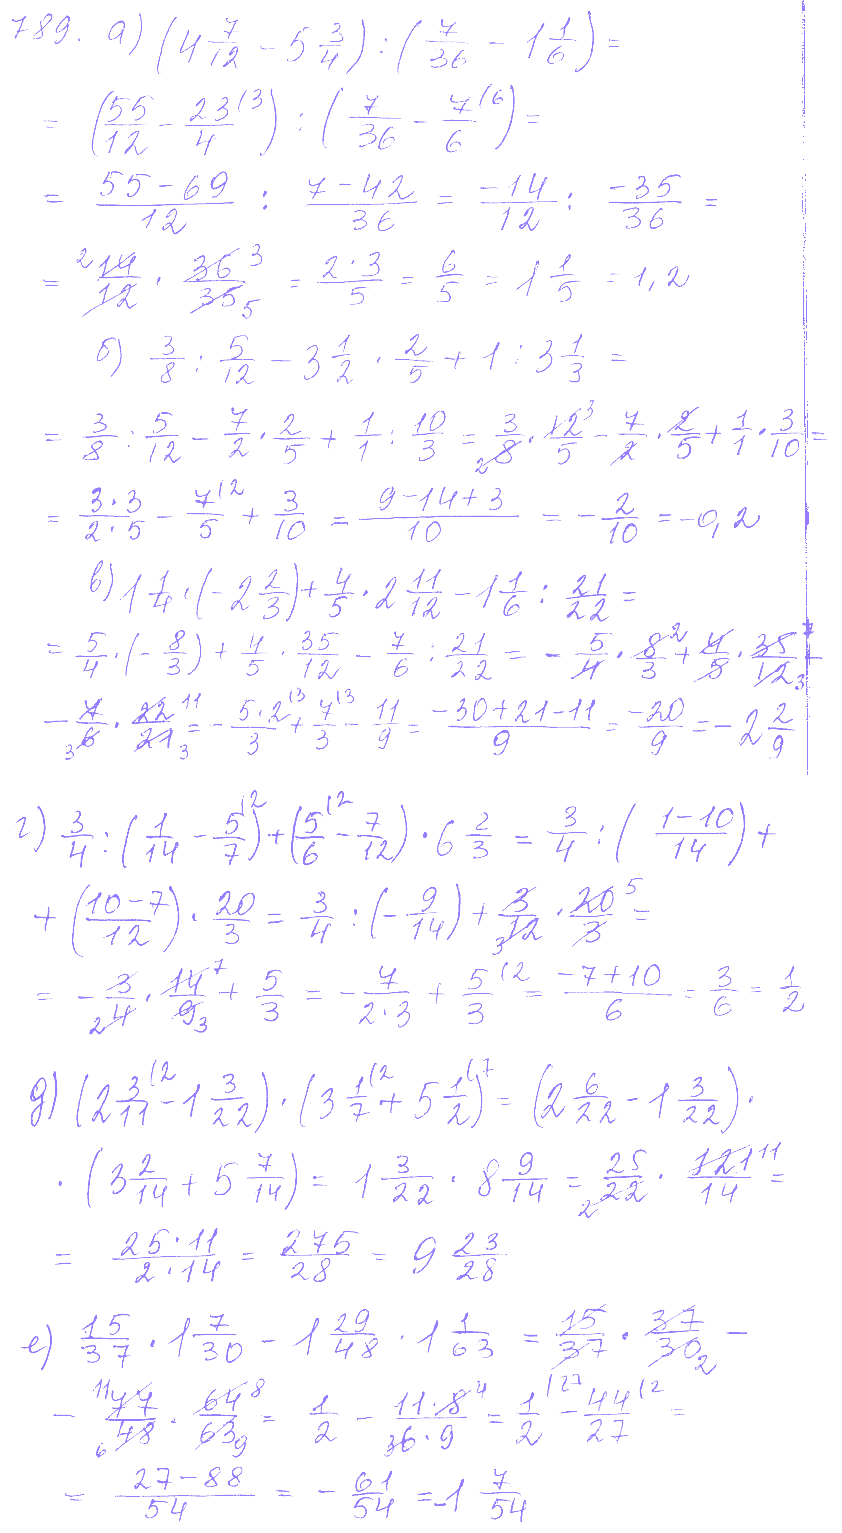 789. а) (4 7/12 − 5 3/4) : (7/36 − 1 1/6) =
= (55/12 − 23/4 (3) : (7/36 − 7/6 (6) =
= (55−69)/12 : (7−42)/36 = −14/12 : −35/36 =
= 2 14/12 · 36/35 3 5 = (2·3)/5 = 6/5 = 1 1/5 = 1,2
б) 3/8 : 5/12 − 3 1/2 · 2/5 + 1 : 3 1/3 =
= 3/8 : 5/12 − 7/2 · 2/5 + 1/1 : 10/3 = 3/8 2 · 12/5 3 − 7/2 · 2/5 + 1/1 · 3/10 =
= (3·3)/(2·5) − 7/5 (2 + 3/10 = (9−14+3)/10 = −2/10 = −0,2
в) 1 1/4 · (−2 2/3) + 4/5 · 2 11/12 − 1 1/6 : 21/22 =
= 5/4 · (−8/3) + 4/5 · 35/12 − 7/6 : 21/22 = −5/4 · 8/3 2 + 4/5 · 35/12 7 3 −
− 7/6 3 · 22/21 11 3 = −(5·2)/3 (3 + 7/3 (3 − 11/9 = (−30+21−11)/9 = −20/9 = −2 2/9
г) 3/4 : (1/14 − 5/7 (2) + (5/6 (2 − 7/12) · 6 2/3 = 3/4 : ((1−10)/14) +
+ ((10−7)/12) · 20/3 = 3/4 : (−9/14) + 3/12 3 · 20/3 5 =
= −3/4 2 · 14/9 7 3 + 5/3 = −7/(2·3) + 5/3 (2 = (−7+10)/6 = 3/6 = 1/2
д) (2 3/11 (2 − 1 3/22) · (3 1/7 (2 + 5 1/2 (7) = (2 6/22 − 1 3/22) ·
· (3 2/14 + 5 7/14) = 1 3/22 · 8 9/14 = 25/22 2 · 121/14 11 =
= (25·11)/(2·14) = 275/28 = 9 23/28
е) 15/37 · 1 7/30 − 1 29/48 · 1 1/63 = 15/37 · 37/30 2 −
− 11 77/48 6 · 64/63 8 9 = 1/2 − (11·8 4)/(3 6·9) = 1/2 (27 − 44/27 (2 =
= (27−88)/54 = −61/54 = −1 7/54